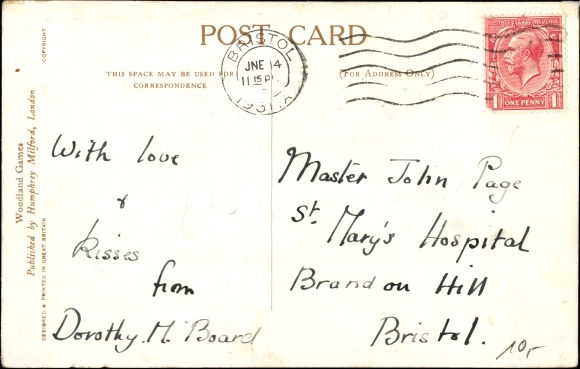 POST CARD
THIS SPACE MAY BE USED FOR
CORRESPONDENCE
(For Address Only)
BRISTOL
JNE 14
11 15 P
1931. A
POSTAGE REVENUE
1 ONE PENNY 1
COPYRIGHT
Woodland Games
Published by Humphrey Milford, London
DESIGNED & PRINTED IN GREAT BRITAIN
With love
&
kisses
from
Dorothy. M. Board
Master John Page
St. Mary's Hospital
Brandon Hill
Bristol.
10,-